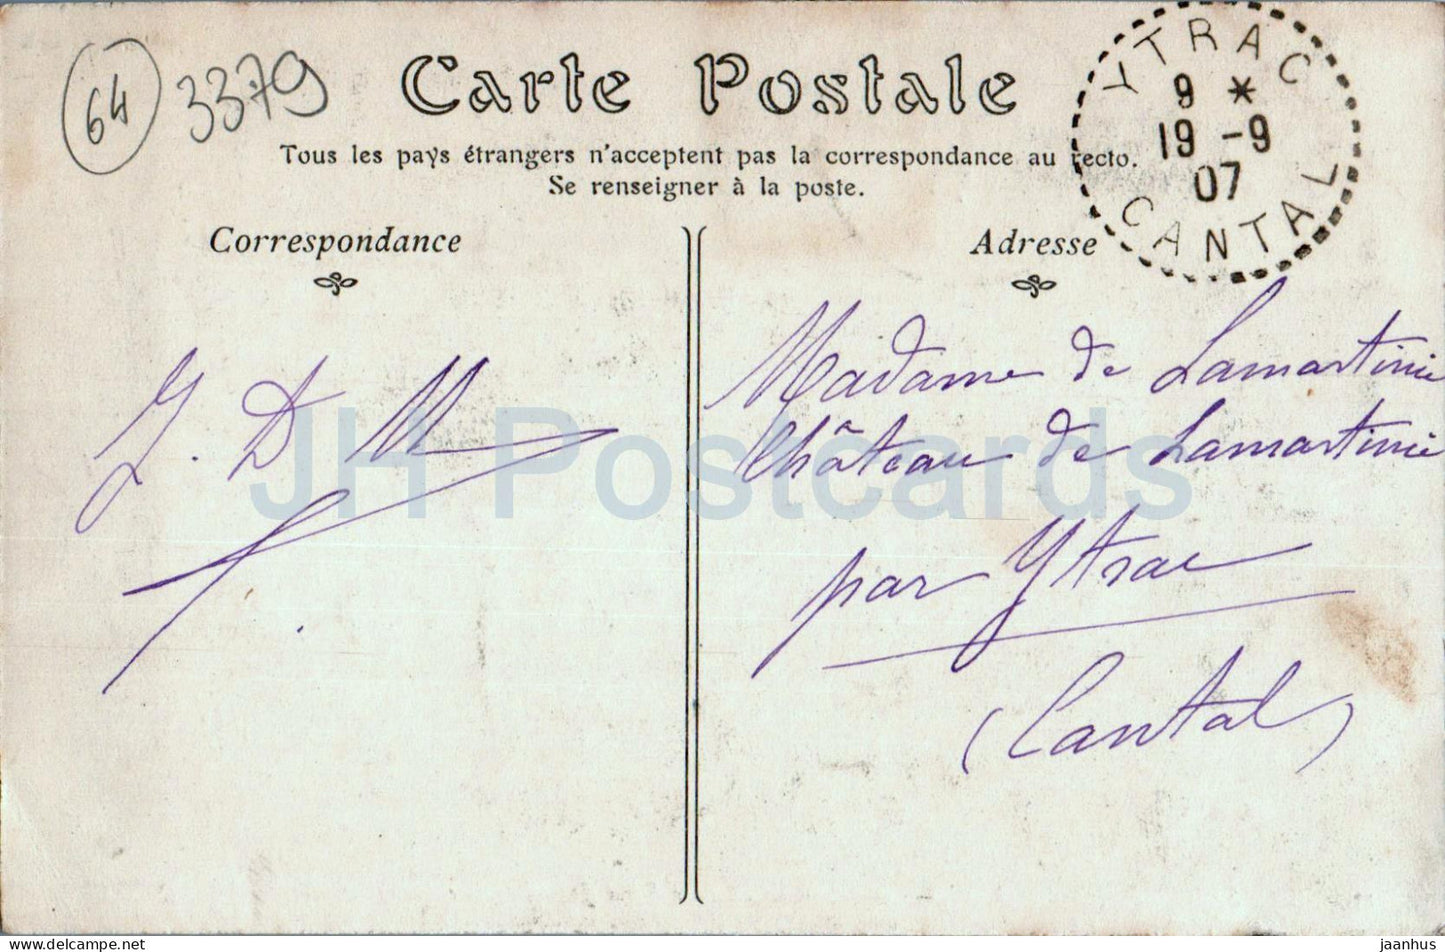 64 3379
Carte Postale
Tous les pays étrangers n'acceptent pas la correspondance au recto.
Se renseigner à la poste.
YTRAC
9 *
19 -9
07
CANTAL
Correspondance
J. D M
Adresse
Madame de Lamartinie
Château de Lamartinie
par Ytrac
(Cantal)
JH Postcards
www.delcampe.net
jaanhus